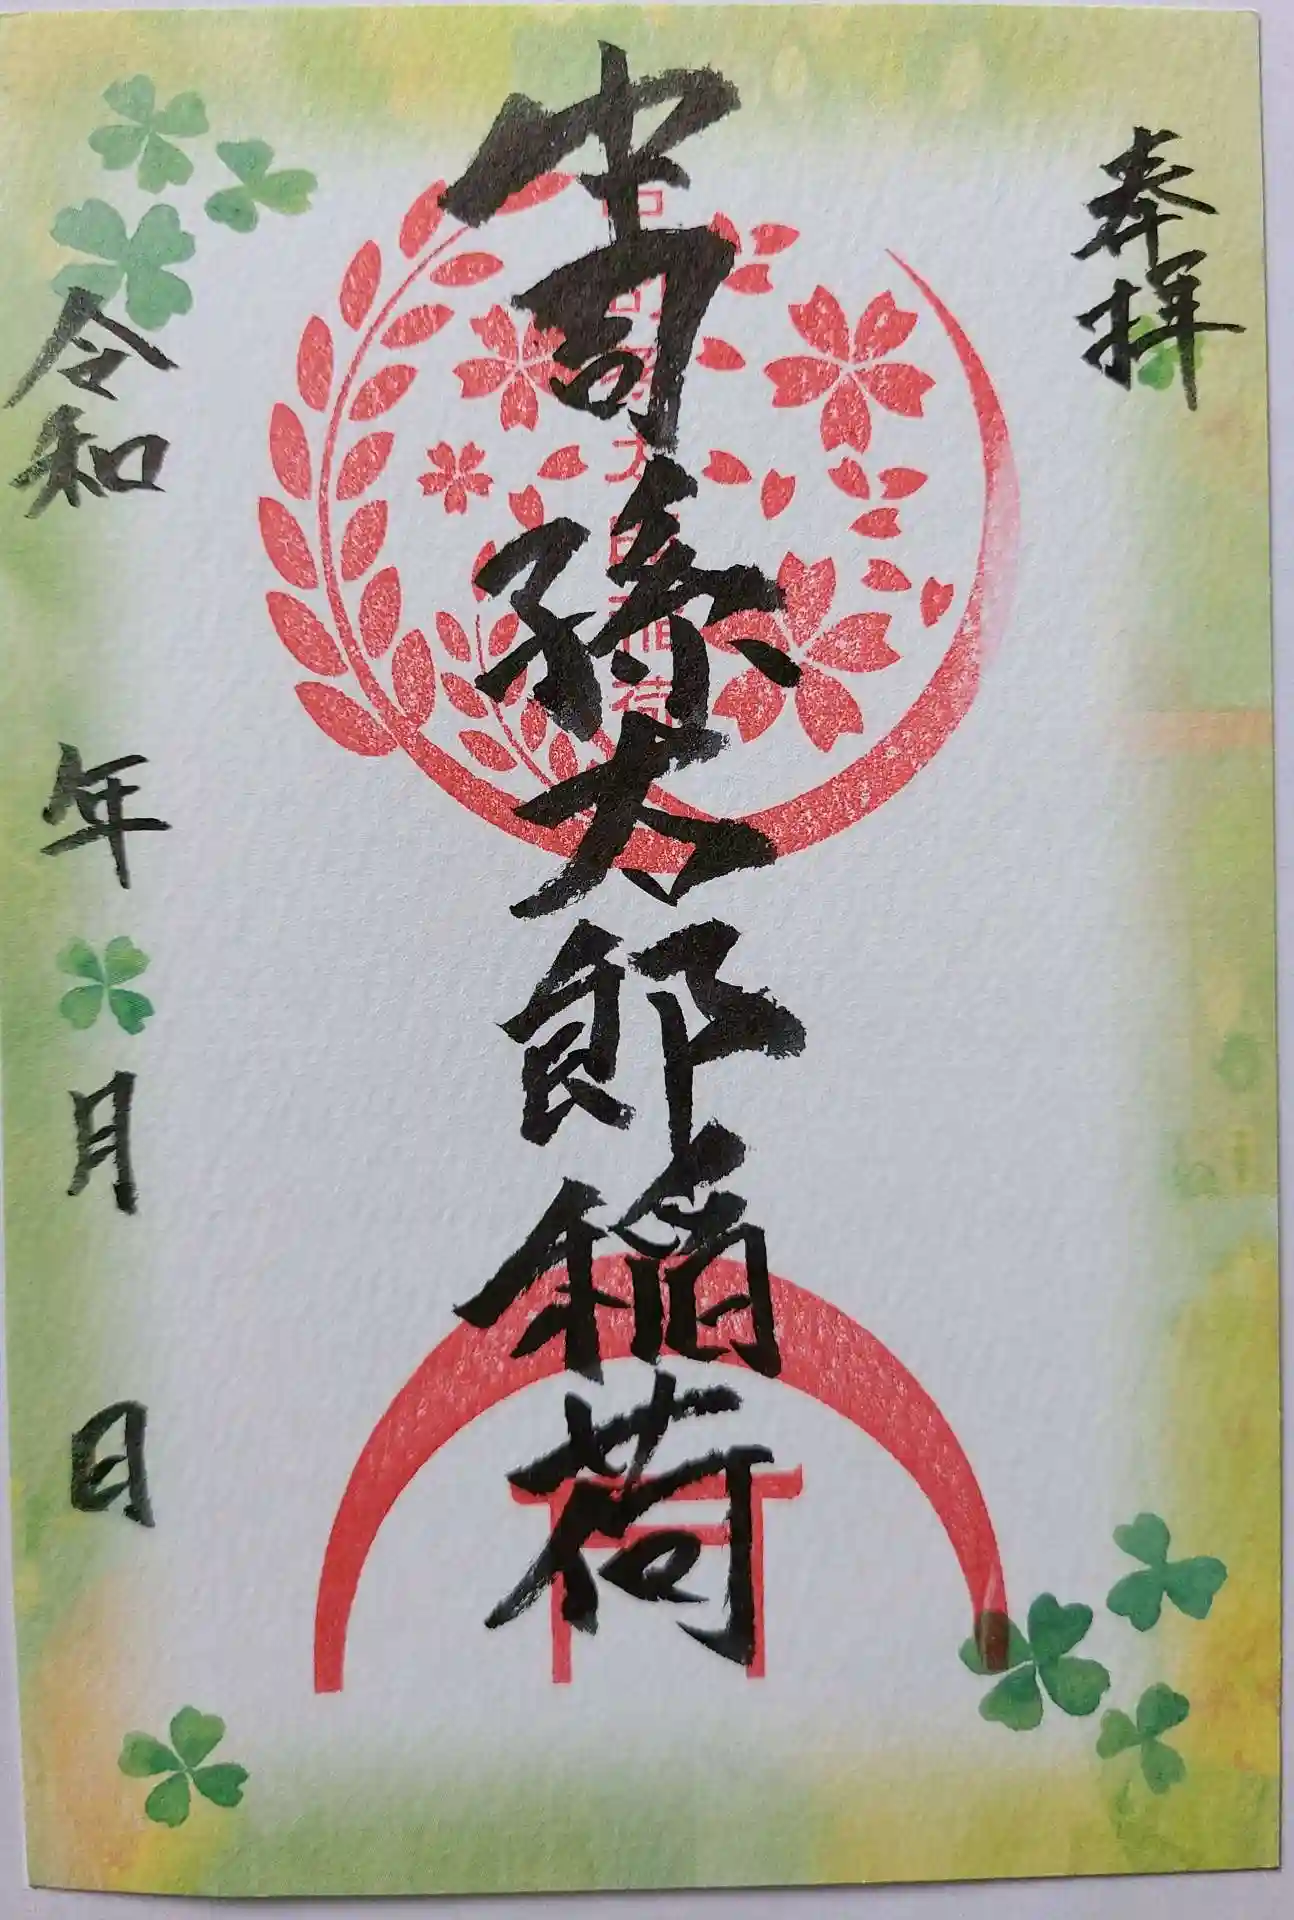 奉拝
中司孫太郎稲荷
令和 年 月 日